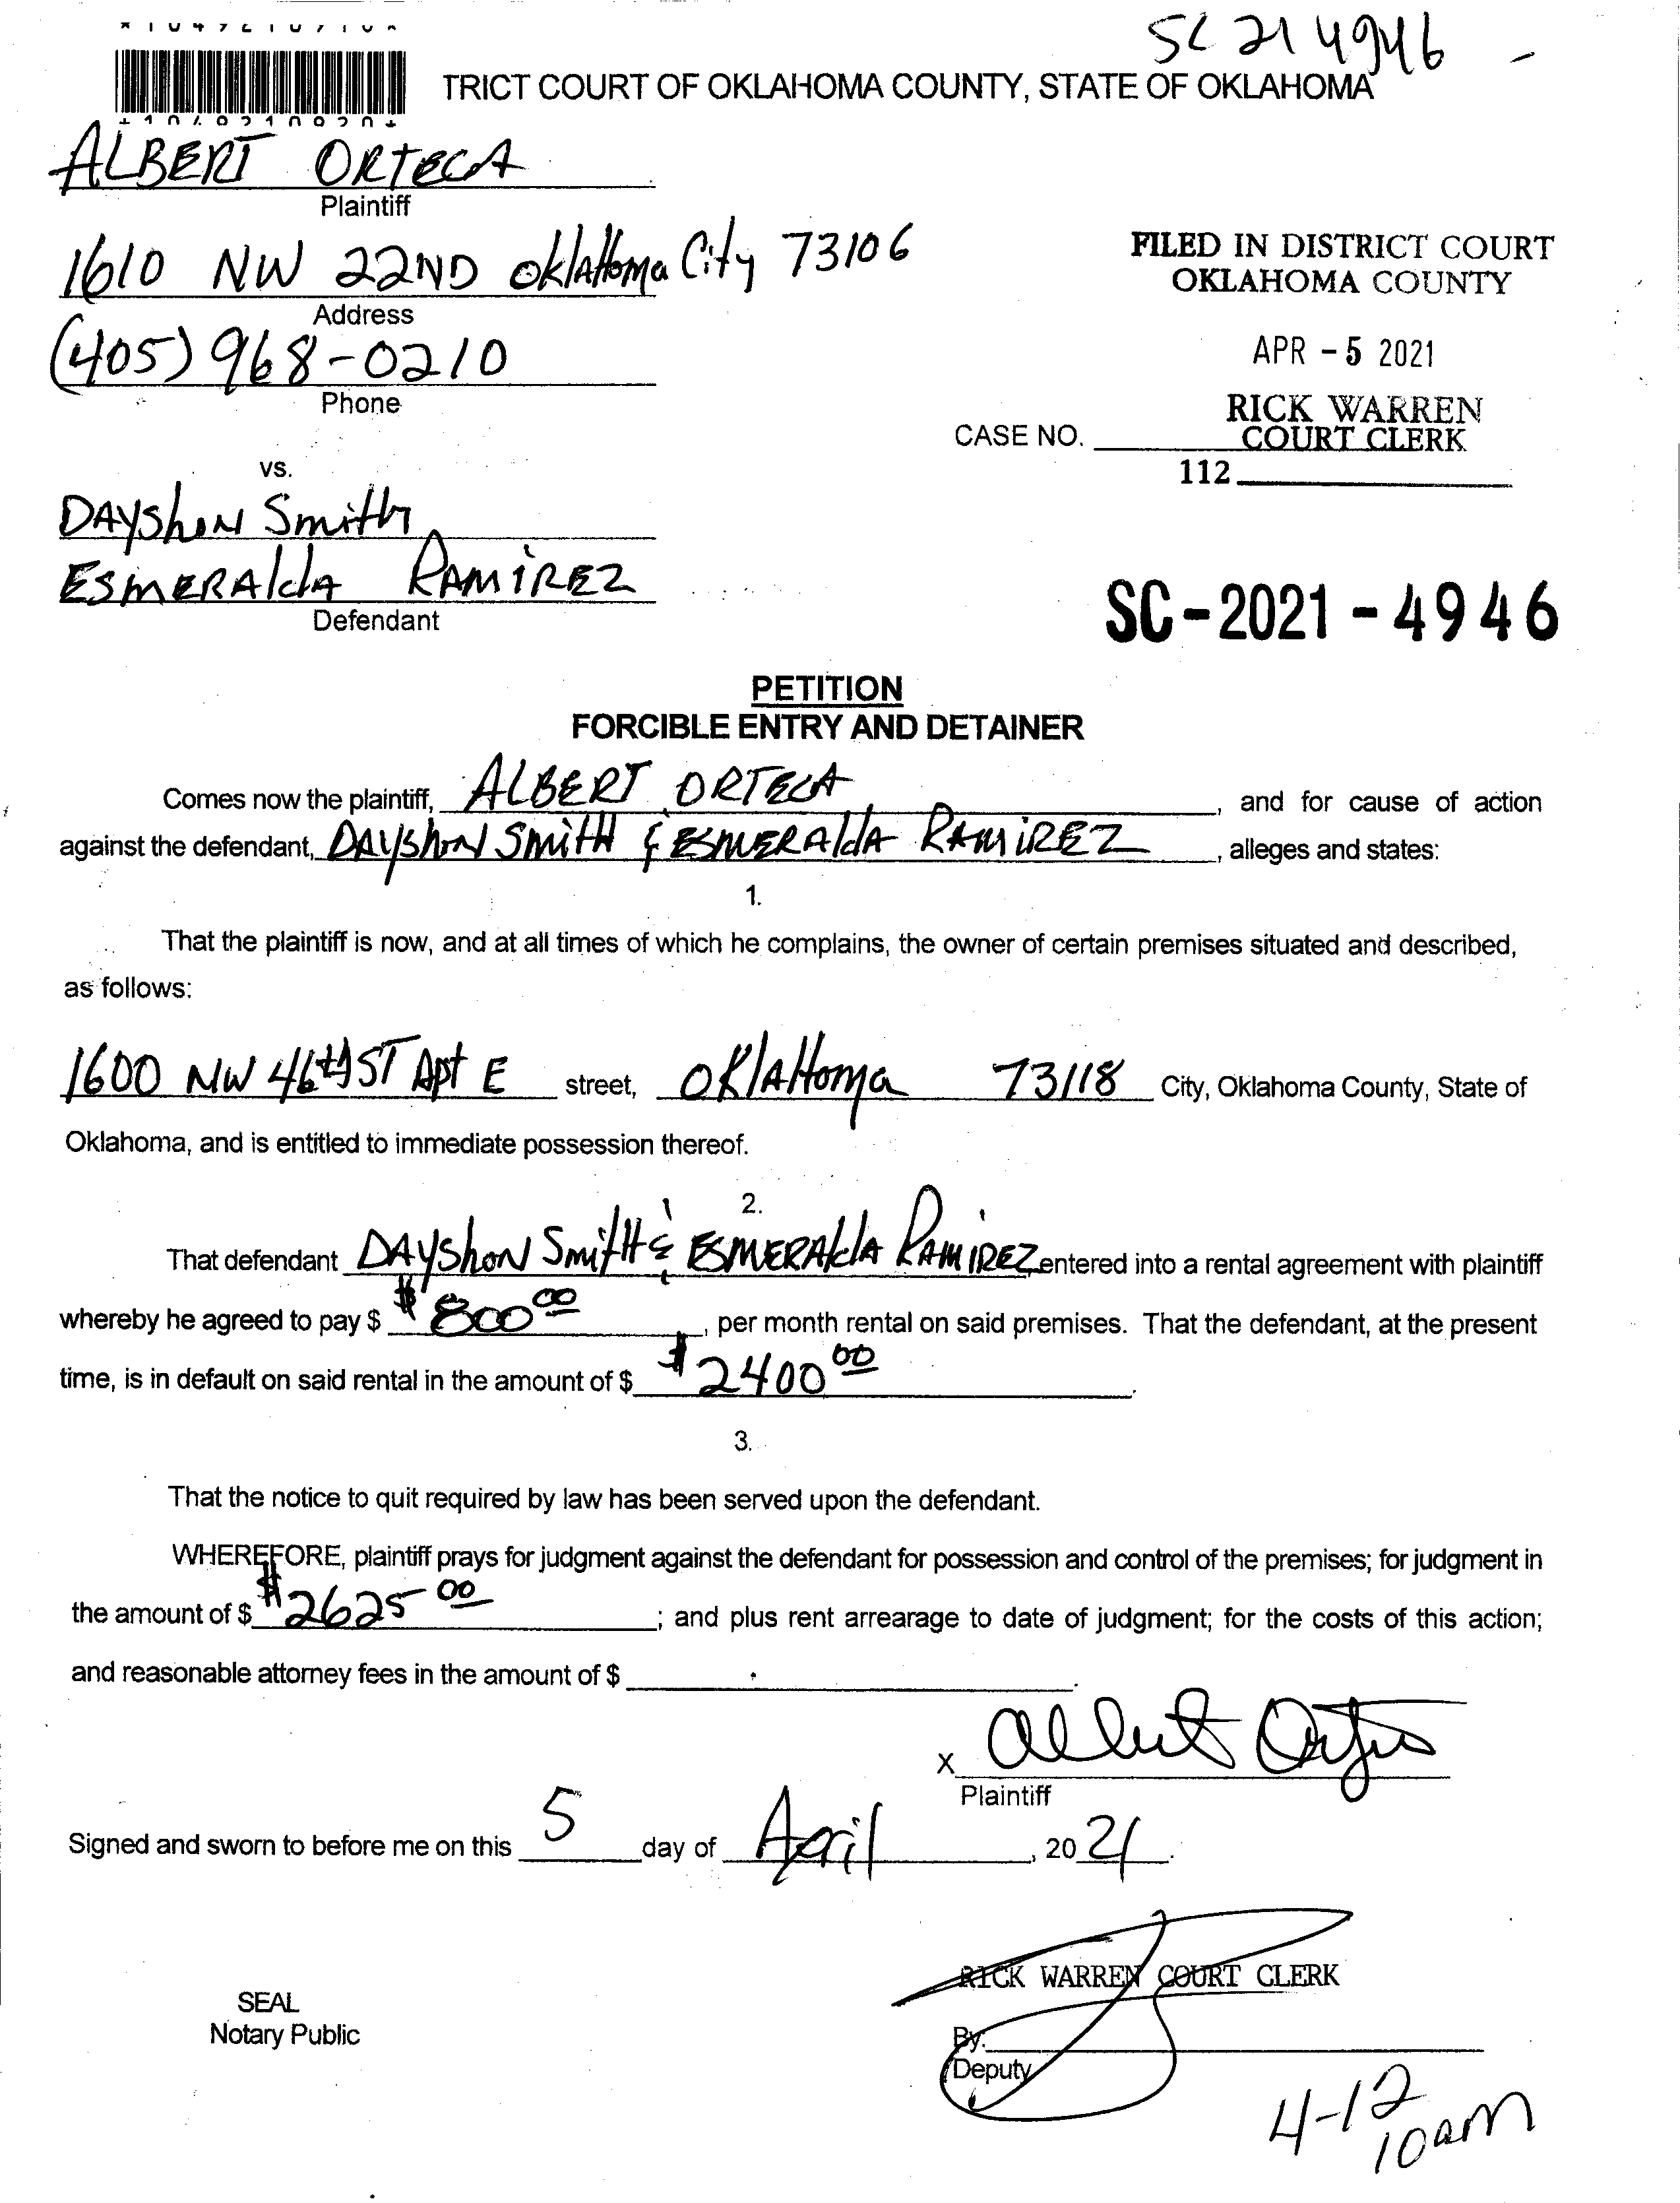 SC 21 4946 -
TRICT COURT OF OKLAHOMA COUNTY, STATE OF OKLAHOMA
ALBERT ORTEGA
Plaintiff
1610 NW 22ND OklaHoma City 73106
Address
(405) 968-0210
Phone
FILED IN DISTRICT COURT
OKLAHOMA COUNTY
APR - 5 2021
RICK WARREN
CASE NO. COURT CLERK
112
vs.
DAYShoN Smith
ESMERAldA RAMIREZ
Defendant
SC-2021-4946
PETITION
FORCIBLE ENTRY AND DETAINER
Comes now the plaintiff, ALBERT ORTEGA, and for cause of action
against the defendant, DAYShoN SmitH & ESMERAldA RAMIREZ, alleges and states:
1.
That the plaintiff is now, and at all times of which he complains, the owner of certain premises situated and described,
as follows:
1600 NW 46tH ST Apt E street, OklaHoma 73118 City, Oklahoma County, State of
Oklahoma, and is entitled to immediate possession thereof.
2.
That defendant DAYShoN SmitH & ESMERAldA RAMIREZ entered into a rental agreement with plaintiff
whereby he agreed to pay $ $800.00, per month rental on said premises. That the defendant, at the present
time, is in default on said rental in the amount of $ $2400.00.
3.
That the notice to quit required by law has been served upon the defendant.
WHEREFORE, plaintiff prays for judgment against the defendant for possession and control of the premises; for judgment in
the amount of $ $2625.00; and plus rent arrearage to date of judgment; for the costs of this action;
and reasonable attorney fees in the amount of $ .
x Albert Ortega
Plaintiff
Signed and sworn to before me on this 5 day of April, 2021.
RICK WARREN COURT CLERK
SEAL
Notary Public
By:
Deputy
4-12
10am